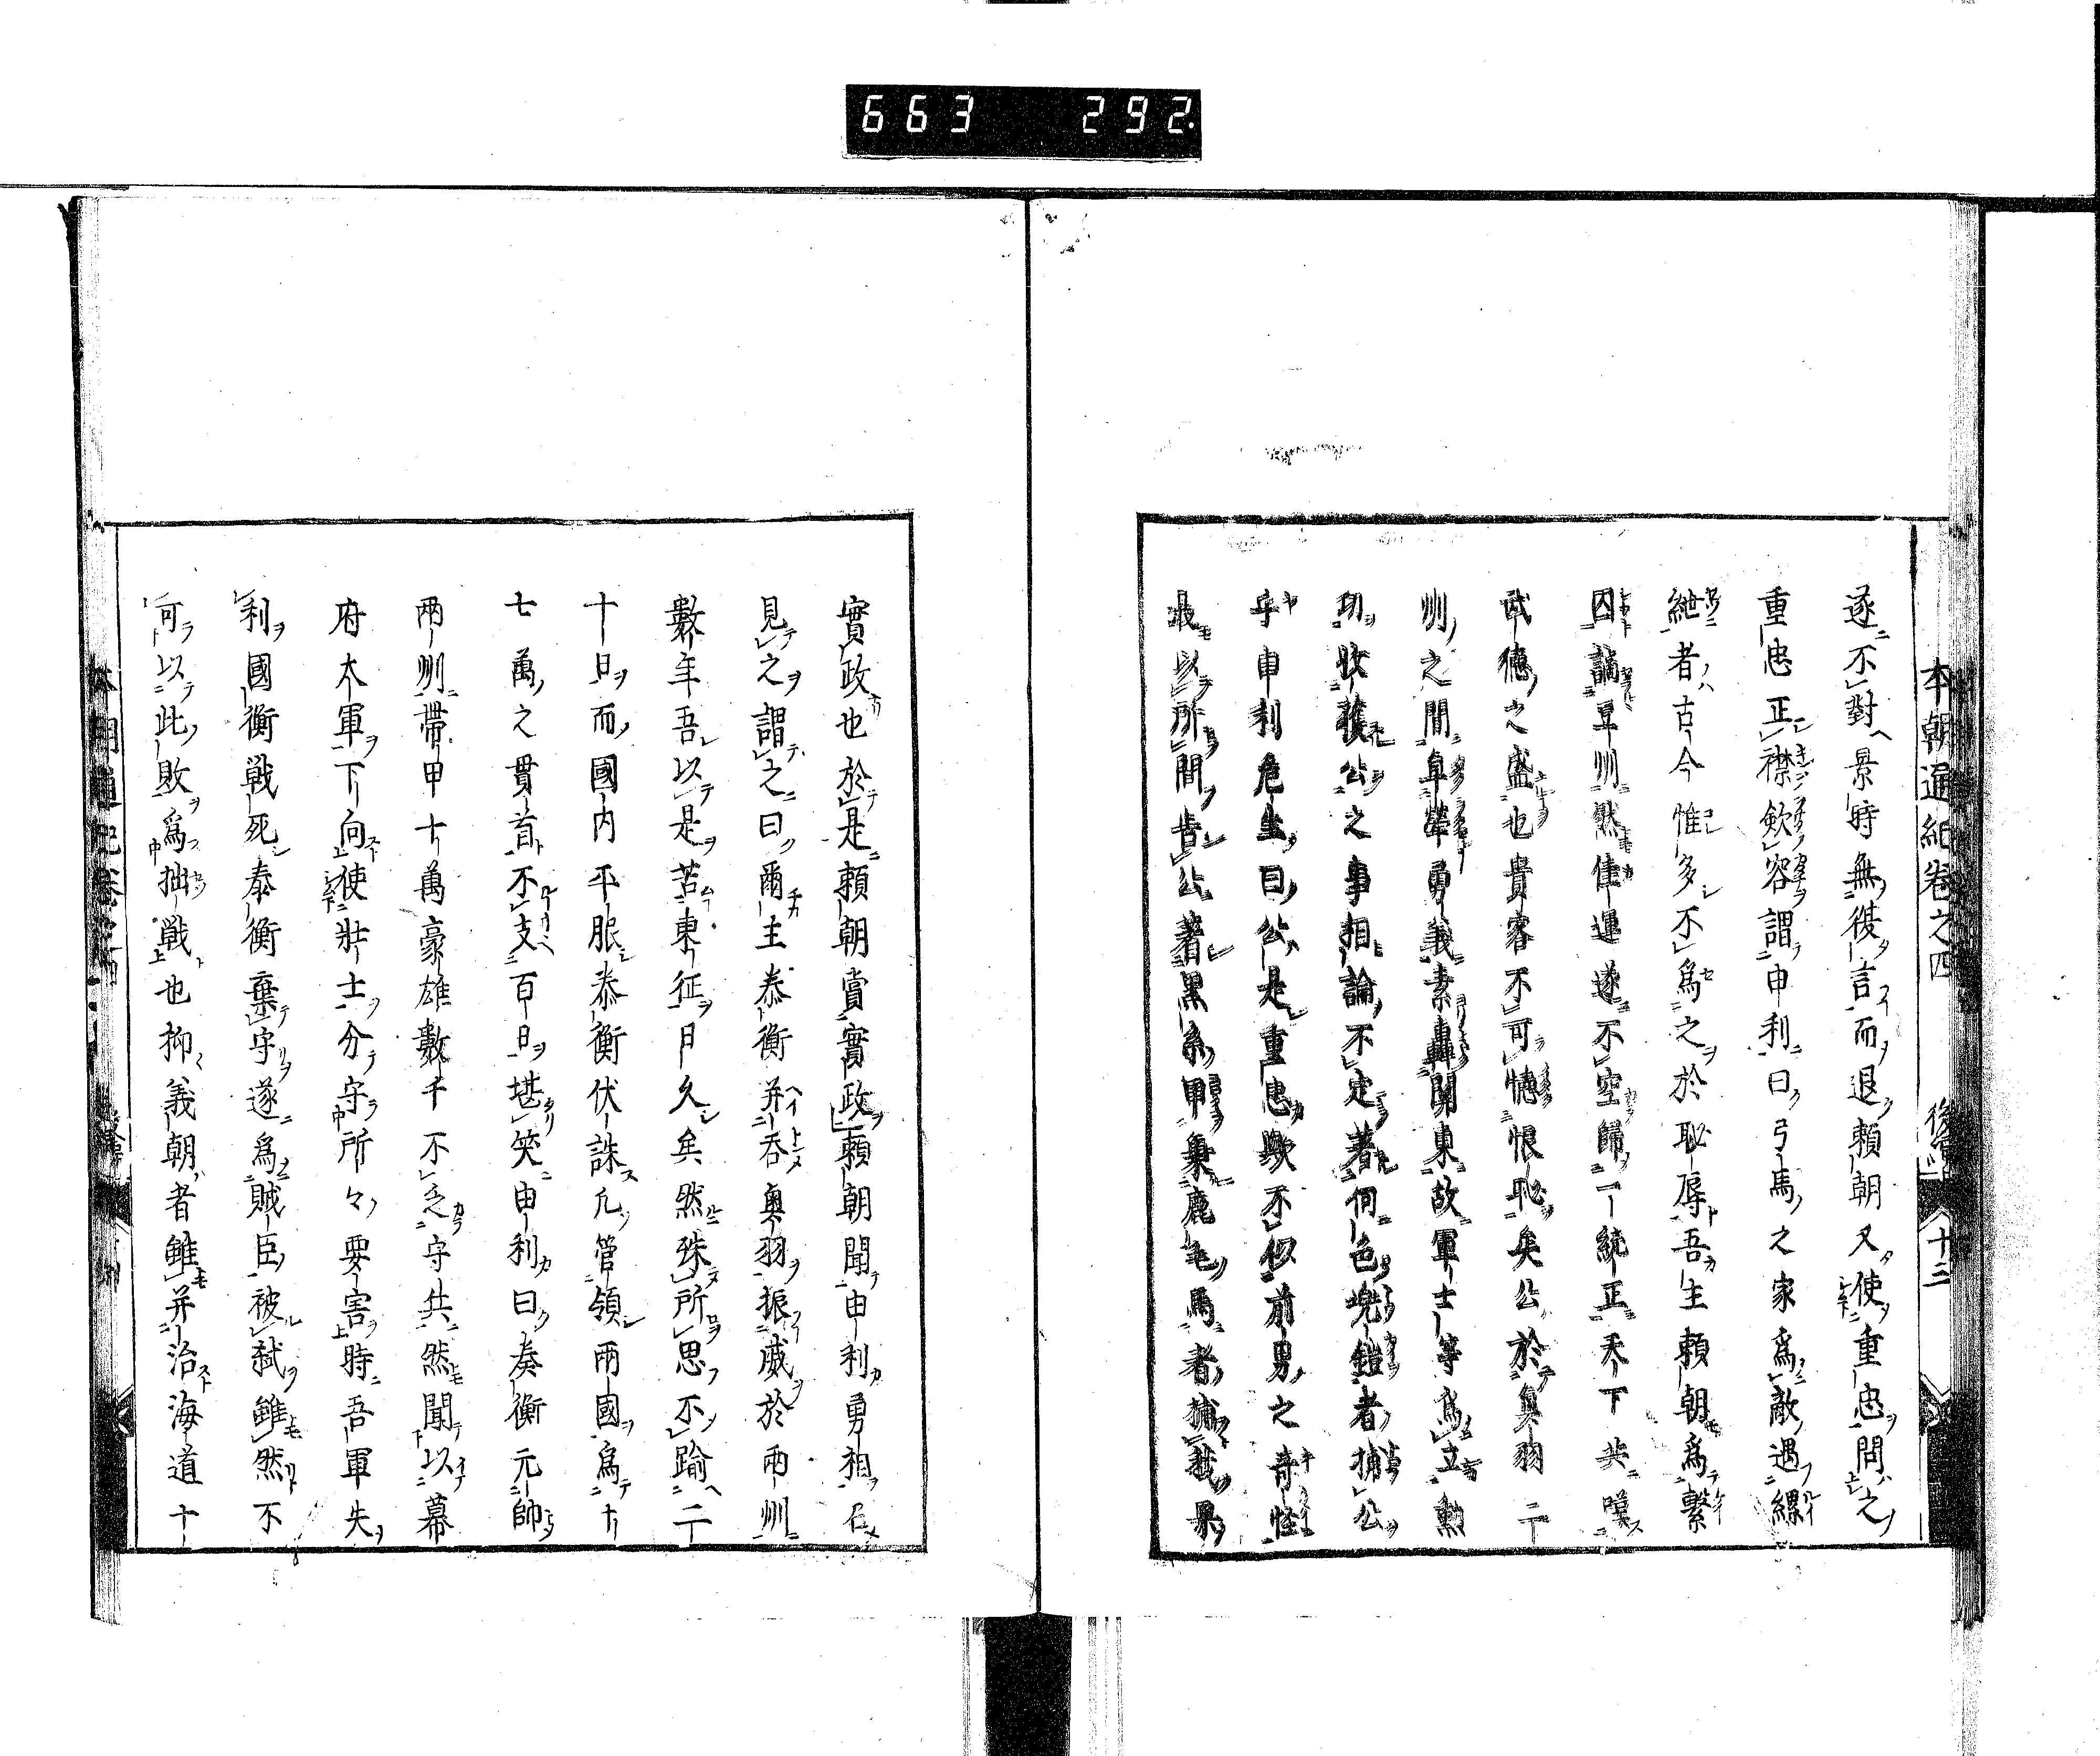 663 292.
本朝通紀卷之四 後 十三
遂不對景時無復言而退賴朝又使重忠問之
重忠正襟欽容謂申利曰弓馬之家爲敵遇縲
紲者古今惟多不爲之於恥辱吾主賴朝爲繫
囚謫豆州然偉運遂不空歸一統正天下共嘆
武德之盛也貴客不可憾恨恥矣公於奧羽二
州之間卓犖勇義素轟關東故軍士等爲立勲
功收獲公之事相論不定著何色兠鎧者捕公
乎申利危坐曰公是重忠歟不似前男之奇怪
最以所問告公著黑糸甲乗鹿毛馬者捕我果
實政也於是賴朝賞實政賴朝聞申利勇相召
見之謂之曰爾主泰衡并吞奧羽振威於兩州
數年吾以是苦東征日久矣然殊所思不踰二
十日而國内平服泰衡伏誅凢管領兩國爲十
七萬之貫首不支百日堪笑由利曰泰衡元帥
兩州帶甲十萬豪雄數千不乏守共然聞以幕
府大軍下向使壯士分守所々要害時吾軍失
利國衡戰死泰衡棄守遂爲賊臣被弑雖然不
可以此敗爲拙戰也抑義朝者雖并治海道十